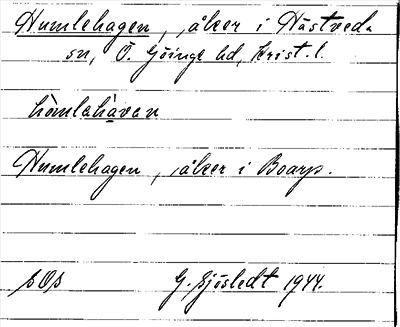 Humlehagen, åker i Hästveda
sn, Ö. Göinge hd, Krist. l.
hòmlahàvan
Humlehagen, åker i Boarp.
SOS G. Sjöstedt 1944.